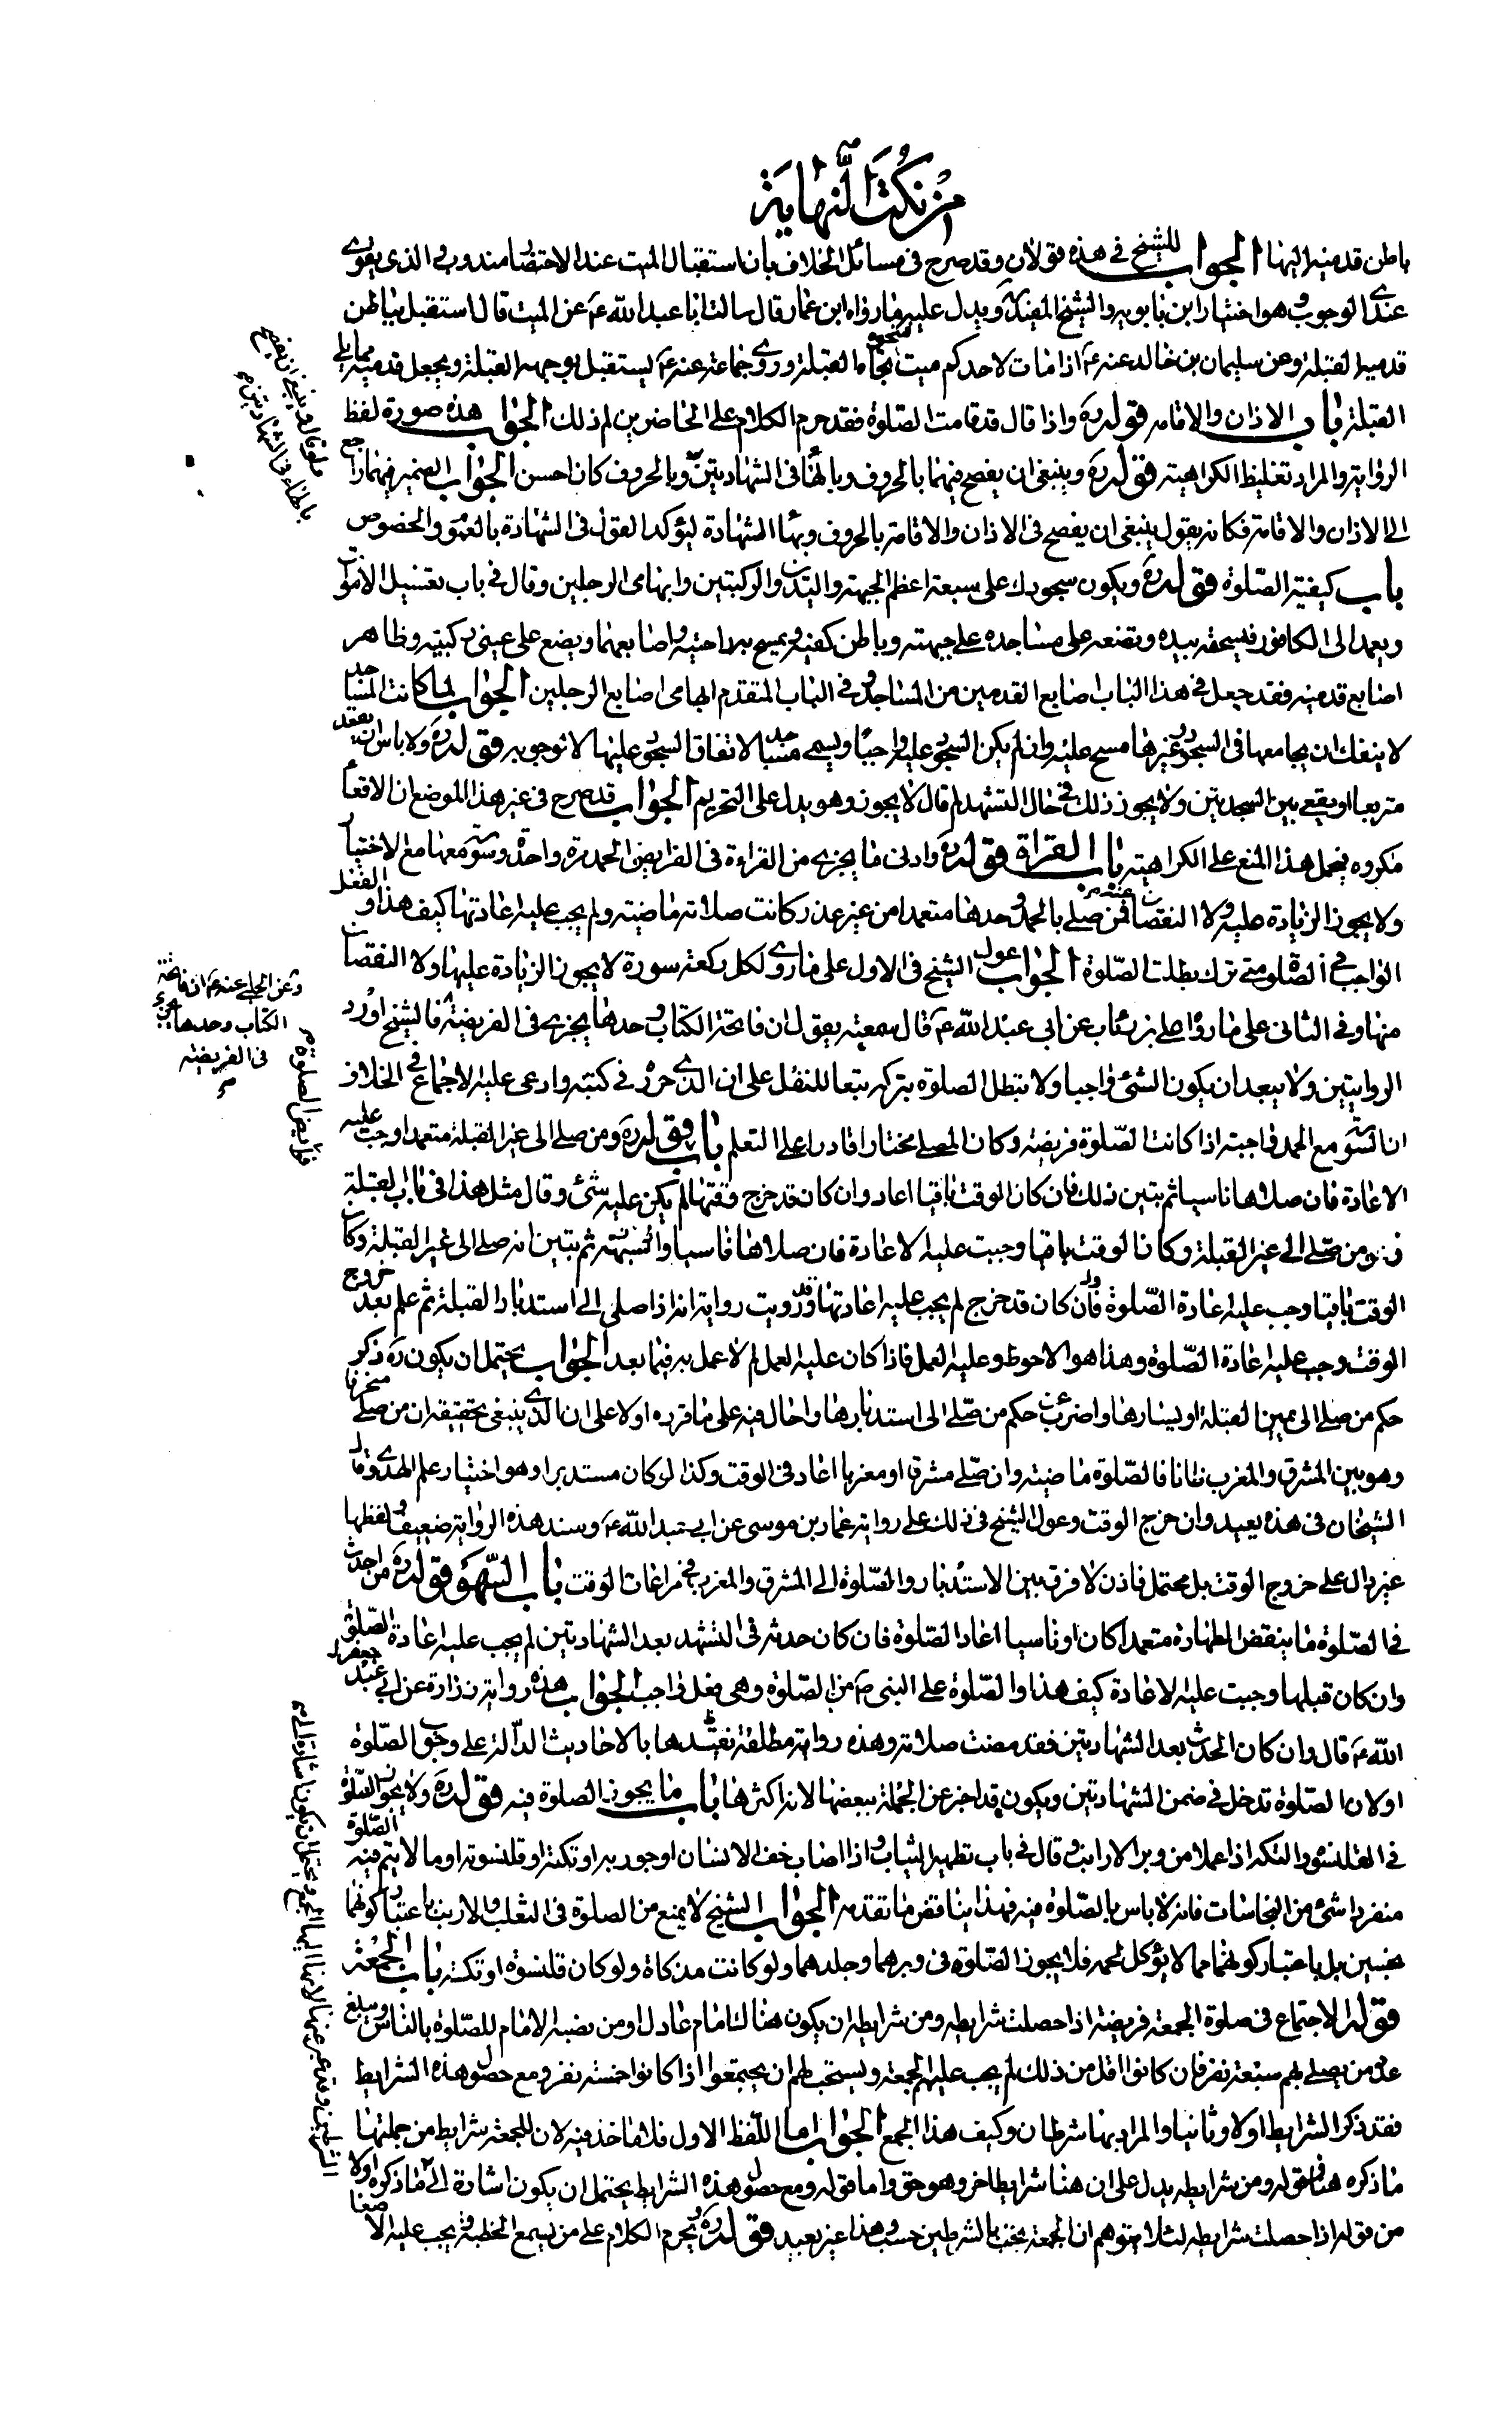 من نكت النهاية
باطن قدميه إليها الجواب للشيخ في هذه قولان وقد صرح في مسائل الخلاف بأن استقبال الميت عند الاحتضار مندوب والذي يقوى
عندي الوجوب وهو اختيار ابن بابويه والشيخ المفيد ره ويدل عليه ما رواه ابن عمار قال سالت ابا عبد الله ع عن الميت قال استقبل بباطن
قدميه القبلة وعن سليمان بن خالد عنه ع اذا مات لاحدكم ميت فسجوه تجاه القبلة وروى جماعة عنه ع يستقبل بوجهه القبلة ويجعل قدميه مما يلي
القبلة باب الاذان والاقامة قوله ره واذا قال قد قامت الصلوة فقد حرم الكلام على الحاضرين لم ذلك الجواب هذه صورة لفظ
الرواية والمراد تغليظ الكراهية قوله ره وينبغي ان يفصح فيهما بالحروف وبالهاء في الشهادتين وبالحروف كان احسن الجواب الضمير فيهما راجع
الى الاذان والاقامة فكانه يقول ينبغي ان يفصح في الاذان والاقامة بالحروف وبهاء الشهادة ليؤكد القول في الشهادة بالعموم والخصوص
باب كيفية الصلوة قوله ره ويكون سجودك على سبعة اعظم الجبهة واليدين والركبتين وابهامي الرجلين وقال في باب تغسيل الاموات
ويعمد الى الكافور فيسحقه بيده ويضعه على مساجده على جبهته وباطن كفيه ويمسح به راحتيه واصابعهما ويضع على عيني ركبتيه وظاهر
اصابع قدميه فقد جعل في هذا الباب اصابع القدمين من المساجد وفي الباب المتقدم ابهامي اصابع الرجلين الجواب لما كانت المساجد
لا ينفك ان يجامعها في السجود غيرها مسح عليه وان لم يكن السجود عليه واجبا ويسمى مسجدا لاتفاق السجود عليها لا لوجوبه قوله ره ولا باس ان يقعد
متربعا او يقعي بين السجدتين ولا يجوز ذلك في حال التشهد لم قال لا يجوز وهو يدل على التحريم الجواب قد صرح في غير هذا الموضع ان الاقعاء
مكروه فيحمل هذا المنع على الكراهية باب القراءة قوله ره وادنى ما يجزي من القراءة في الفرايض الحمد مرة واحدة وسورة معها مع الاختيار
ولا يجوز الزيادة عليه ولا النقصان عنه فمن صلى بالحمد وحدها متعمدا من غير عذر كانت صلاته ماضية ولم يجب عليه اعادتها كيف هذا والفعل
الواجب في الصلوة متى ترك بطلت الصلوة الجواب عول الشيخ في الاول على ما روى لكل ركعة سورة لا يجوز الزيادة عليها ولا النقصان
منها وفي الثاني على ما رواه علي بن رئاب عن ابي عبد الله ع قال سمعته يقول ان فاتحة الكتاب وحدها يجزي في الفريضة فالشيخ اورد
الروايتين ولا يبعد ان يكون الشيء واجبا ولا تبطل الصلوة بتركه تبعا للنقل على ان الذي حرره في كتبه وادعى عليه الاجماع في الخلاف
ان السورة مع الحمد واجبة اذا كانت الصلوة فريضة وكان المصلي مختارا قادرا على التعلم باب قوله ره ومن صلى الى غير القبلة متعمدا وجبت عليه
الاعادة فان صلاها ناسيا ثم تبين ذلك فان كان الوقت باقيا اعاد وان كان قد خرج وقتها لم يكن عليه شيء وقال مثل هذا في باب القبلة
ومن صلى الى غير القبلة وكان الوقت باقيا وجبت عليه الاعادة فان صلاها ناسيا والشبهة ثم تبين انه صلى الى غير القبلة وكان
الوقت باقيا وجب عليه اعادة الصلوة فان كان قد خرج لم يجب عليه اعادتها وقد رويت رواية انه اذا صلى الى استدبار القبلة ثم علم بعد خروج
الوقت وجب عليه اعادة الصلوة وهذا هو الاحوط وعليه العمل فاذا كان عليه العمل لم لا عمل به فيما بعد الجواب يحتمل ان يكون ره ذكر
حكم من صلى الى يمين القبلة او يسارها واضرب عن حكم من صلى الى استدبارها واحال فيه على ما قرره اولا على ان الذي ينبغي تحقيقه ان من صلى منحرفا
وهو بين المشرق والمغرب ظانا فالصلوة ماضية وان صلى مشرقا او مغربا اعاد في الوقت وكذا لو كان مستدبرا وهو اختيار علم الهدى وقال
الشيخان في هذه يعيد وان خرج الوقت وعول الشيخ في ذلك على رواية عمار بن موسى عن ابي عبد الله ع وسند هذه الرواية ضعيف ولفظها
غير دال على خروج الوقت بل محتمل فاذن لا فرق بين الاستدبار والصلوة الى المشرق والمغرب في مراعات الوقت باب السهو قوله ره من احدث
في الصلوة ما ينقض الطهارة متعمدا كان او ناسيا اعاد الصلوة فان كان حدثه في التشهد بعد الشهادتين لم يجب عليه اعادة الصلوة
وان كان قبلها وجبت عليه الاعادة كيف هذا والصلوة على النبي ص من الصلوة وهي فعل واجب الجواب هذه رواية زرارة عن ابي عبد
الله ع قال وان كان الحدث بعد الشهادتين فقد مضت صلاته وهذه رواية مطلقة نقيدها بالاحاديث الدالة على وجوب الصلوة
او لان الصلوة تدخل في ضمن الشهادتين ويكون قد اخبر عن الجملة ببعضها لانه اكثرها باب ما يجوز الصلوة فيه قوله ره ولا يجوز الصلوة
في القلنسوة والتكة اذا عملا من وبر الارانب وقال في باب تطهير الثياب واذا اصاب خف الانسان او جوربه او تكته او قلنسوته او ما لا يتم فيه الصلوة
منفردا شيء من النجاسات فانه لا باس بالصلوة فيه فهذا يناقض ما تقدم الجواب الشيخ لا يمنع من الصلوة في الثعلب والارنب باعتبار كونهما
نجسين بل باعتبار كونهما مما لا يؤكل لحمه فلا يجوز الصلوة في وبرهما وجلدهما ولو كانت مذكاة ولو كان قلنسوة او تكة باب الجمعة
قوله الاجتماع في صلوة الجمعة فريضة اذا حصلت شرايطه ومن شرايطه ان يكون هناك امام عادل او من نصبه الامام للصلوة بالناس ويبلغ
عدد من يصلي بهم سبعة نفر فان كانوا اقل من ذلك لم يجب عليهم الجمعة ويستحب لهم ان يجتمعوا اذا كانوا خمسة نفر ومع حصول هذه الشرايط
فقد ذكر الشرايط اولا وثانيا والمراد بها شرطان وكيف هذا الجمع الجواب اما اللفظ الاول فلا مأخذ فيه لان للجمعة شرايط من جملتها
ما ذكره هنا فقوله ومن شرايطه يدل على ان هنا شرايط اخر وهو حق واما قوله ومع حصول هذه الشرايط يحتمل ان يكون اشارة الى ما ذكره اولا
من قوله اذا حصلت شرايطه لئلا يتوهم ان الجمعة تجب بالشرطين حسب وهذا غير بعيد قوله ره ويحرم الكلام على من يسمع الخطبة ويجب عليه الاصغاء
فلو قال وينبغي ان يفصح
بالهاء في الشهادتين
وعن الحلبي عنه ع ان فاتحة
الكتاب وحدها تجزي
في الفريضة
فرايض الصلوة
الشرطين وقد عبر عنهما لانهما اليها الجمع ويحتمل ان يكون اشارة الى